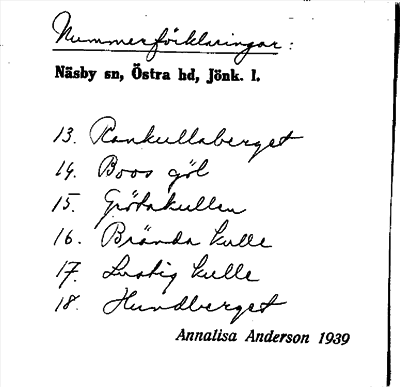 Nummerförklaringar:
Näsby sn, Östra hd, Jönk. l.
13. Rankullaberget
14. Boos göl
15. Grötakullen
16. Brända kulle
17. Lustig kulle
18. Hundberget
Annalisa Anderson 1939